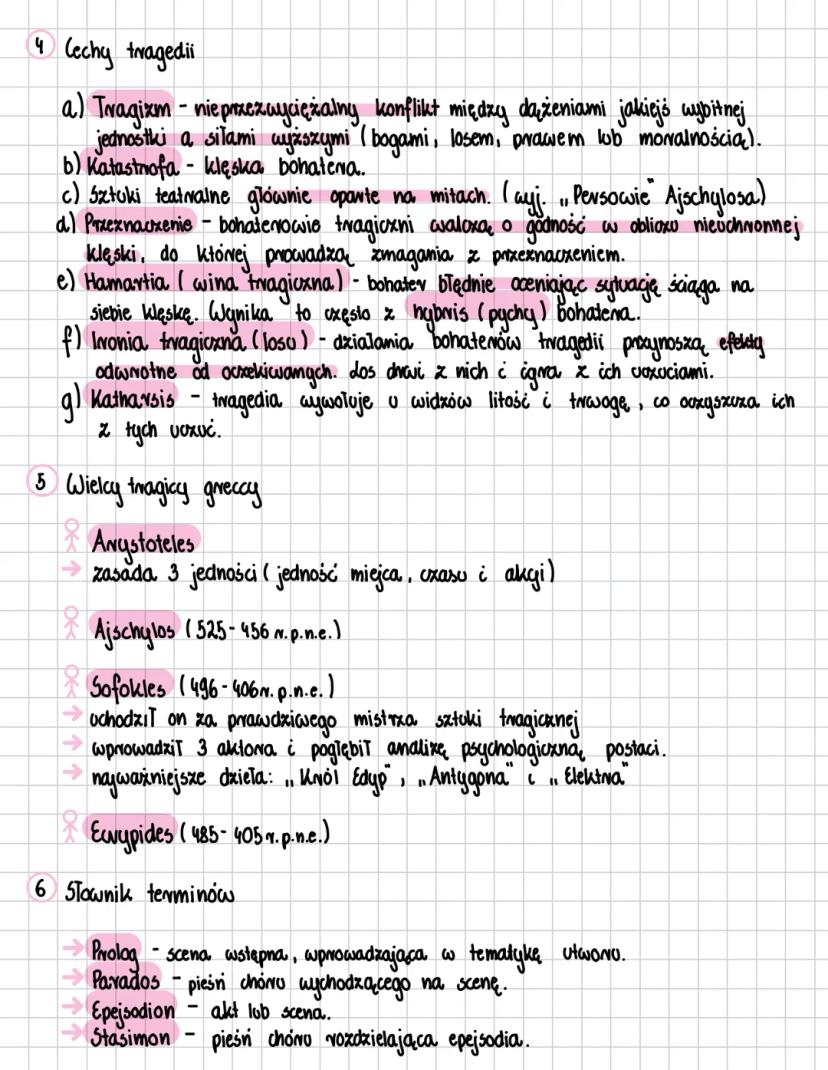 4 Cechy tragedii
a) Tragizm - nieprzezwyciężalny konflikt między dążeniami jakiejś wybitnej
jednostki a siłami wyższymi (bogami, losem, prawem lub moralnością).
b) Katastrofa - klęska bohatera.
c) Sztuki teatralne głównie oparte na mitach. (wyj. „Persowie" Ajschylosa)
d) Przeznaczenie - bohaterowie tragiczni walczą o godność w obliczu nieuchronnej
klęski, do której prowadzą zmagania z przeznaczeniem.
e) Hamartia (wina tragiczna) - bohater błędnie oceniając sytuację ściąga na
siebie klęskę. Wynika to często z hybris (pychy) bohatera.
f) Ironia tragiczna (losu) - działania bohaterów tragedii przynoszą efekty
odwrotne od oczekiwanych. Los drwi z nich i igra z ich uczuciami.
g) Katharsis - tragedia wywołuje u widzów litość i trwogę, co oczyszcza ich
z tych uczuć.
5 Wielcy tragicy greccy
Arystoteles
→ zasada 3 jedności (jedność miejca, czasu i akcji)
Ajschylos (525-456 r.p.n.e.)
Sofokles (496-406r.p.n.e.)
→ uchodził on za prawdziwego mistrza sztuki tragicznej
→ wprowadził 3 aktora i pogłębił analizę psychologiczną postaci.
→ najważniejsze dzieła: „Król Edyp", „Antygona" i „Elektra"
Eurypides (485-405r.p.n.e.)
6 Słownik terminów
→ Prolog - scena wstępna, wprowadzająca w tematykę utworu.
→ Parados - pieśń chóru wychodzącego na scenę.
→ Epejsodion - akt lub scena.
→ Stasimon - pieśń chóru rozdzielająca epejsodia.